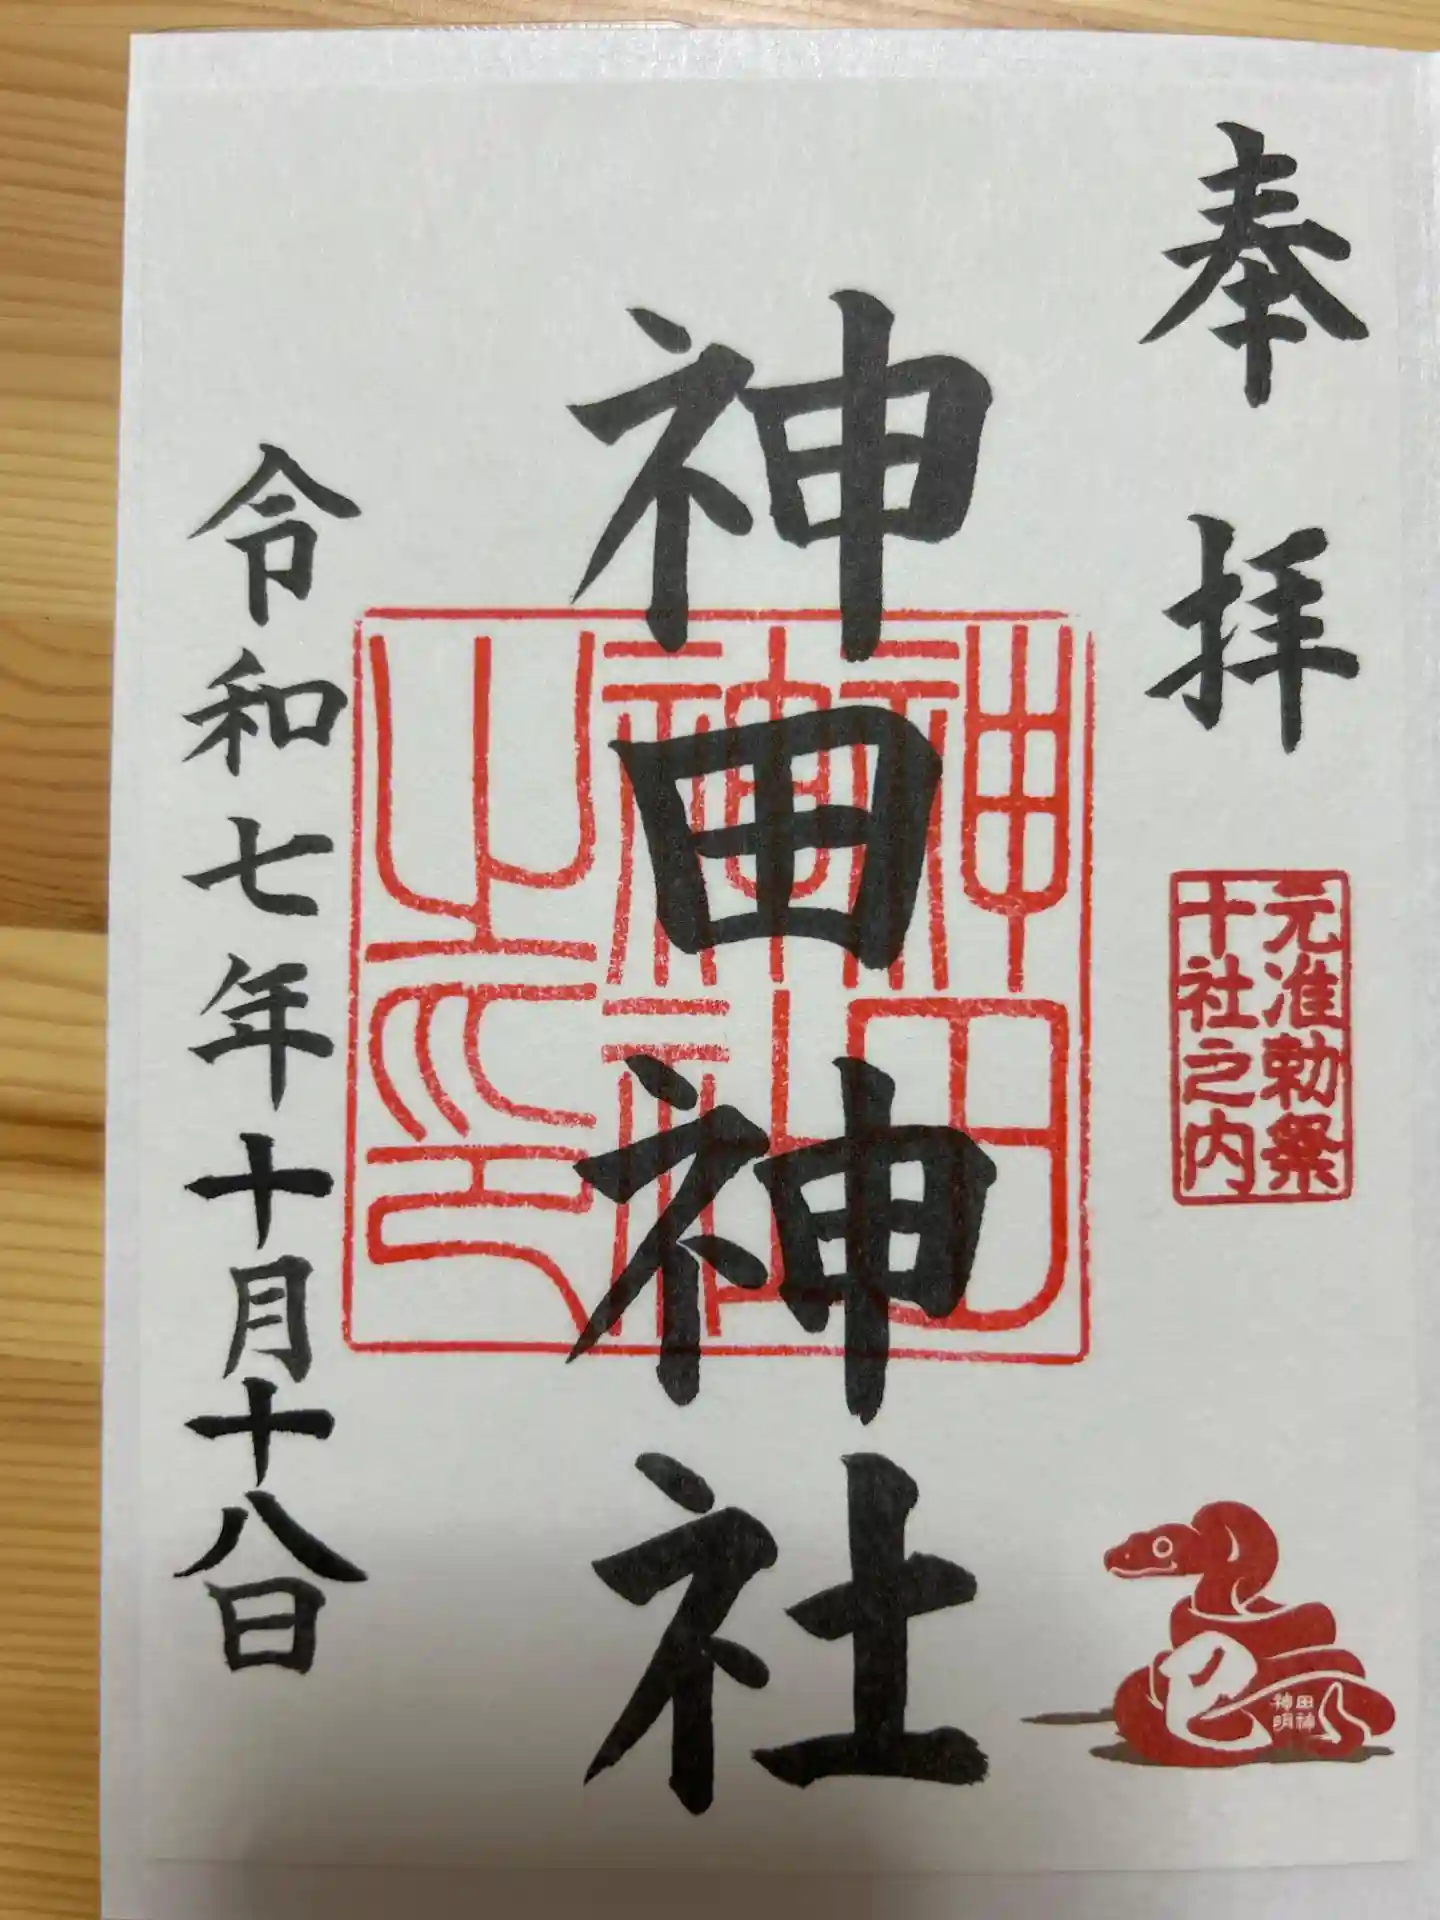 奉拝
元准勅祭
十社之内
巳
神田
神明
神田神社
神田
神社
之印
令和七年十月十八日